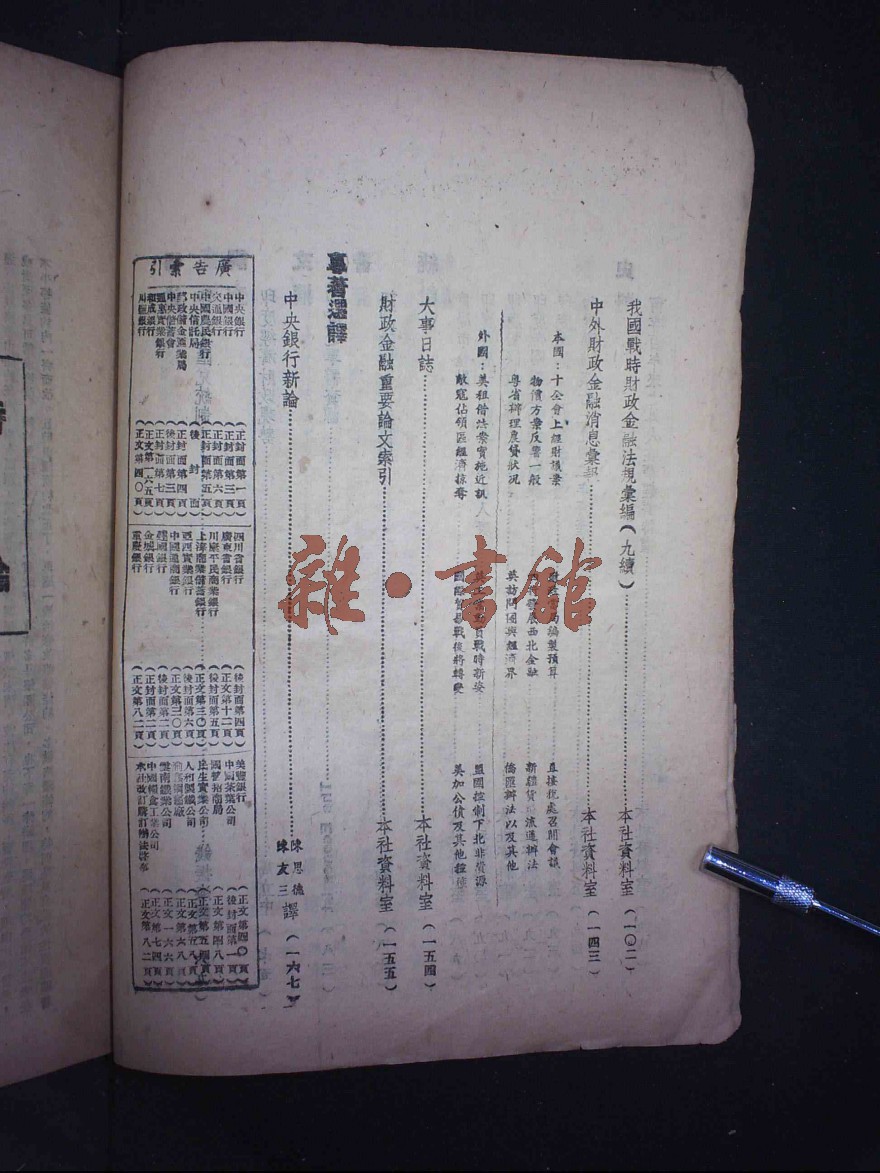 我國戰時財政金融法規彙編（九續）……本社資料室（一〇二）
中外財政金融消息彙報……本社資料室（一四三）
本國：十全會上經財議案　　編製預算　直接稅處召開會議
物價方案反響一般　發展西北金融　新疆貨　流通辦法
粵省辦理農貸狀況　英訪問團與經濟界　僑匯辦法以及其他
外國：美租借法案實施近訊　　員戰時新姿　盟國控制下北非資源
敵寇佔領區經濟掠奪　國際貿易戰後將轉變　英加公債及其他
大事日誌……本社資料室（一五四）
財政金融重要論文索引……本社資料室（一五五）
專著選譯
中央銀行新論……陳思德 陳友三 譯（一六七）
廣告索引
中央銀行（正封面第一頁）
中國銀行（正封面第三頁）
交通銀行（正封面第六頁）
中國農民銀行（正封面第五頁）
中央信託局（後封面）
郵政儲金匯業局（正封面第四頁）
中央儲蓄會（後封面第三頁）
實業銀行（正封面第七頁）
和成銀行（正文第一六五頁）
川康銀行（正文第四〇頁）
四川省銀行（後封面第四頁）
廣東省銀行（正文第十二頁）
川康平民商業銀行（後封面第五頁）
上海商業儲蓄銀行（正文第三〇頁）
亞西實業銀行（後封面第六頁）
中國通商銀行（正文第三〇頁）
建國銀行（後封面第二頁）
金城銀行（正封面第二頁）
重慶銀行（正文第八二頁）
美豐銀行（正文第四〇頁）
中國茶葉公司（後封面第一頁）
國營招商局（正文第四八頁）
民生實業公司（正文第五四頁）
人和製鐵公司（正文第五八頁）
（正文第六八頁）
雲南鋼業公司（正文一六六頁）
中國糧食工業公司（正文第七四頁）
本社改訂購訂辦法啓事（正文第八二頁）
雜·書館